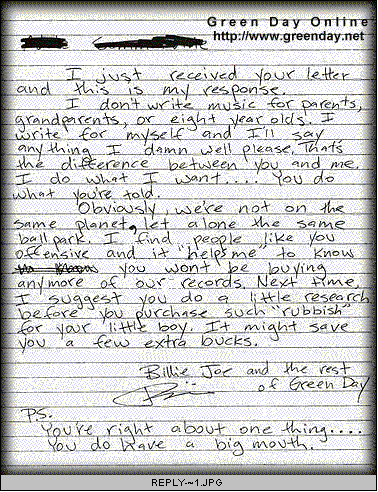 Green Day Online
http://www.greenday.net
I just received your letter
and this is my response.
I don't write music for parents,
grandparents, or eight year olds. I
write for myself and I'll say
anything I damn well please. That's
the difference between you and me.
I do what I want.... You do
what you're told.
Obviously, we're not on the
same planet, let alone the same
ball park. I find people like you
offensive and it "helps me" to know
you wont be buying
anymore of our records. Next time,
I suggest you do a little research
before you purchase such "rubbish"
for your little boy. It might save
you a few extra bucks.
Billie Joe and the rest
of Green Day
P.S.
You're right about one thing....
You do have a big mouth.
REPLY-~1.JPG